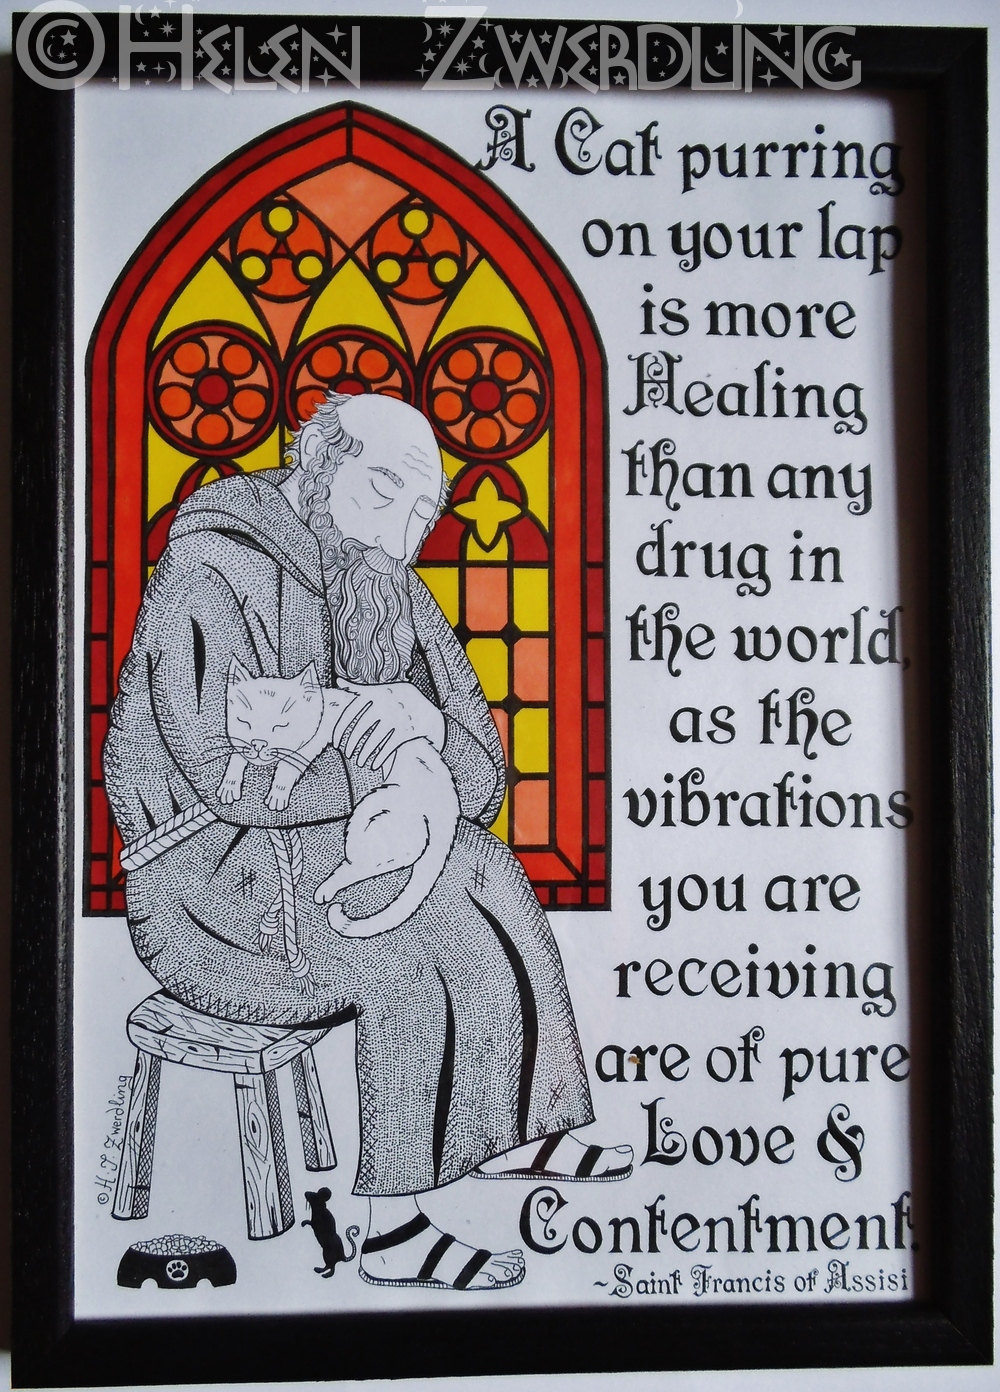 © Helen Zwerdling
A Cat purring
on your lap
is more
Healing
than any
drug in
the world,
as the
vibrations
you are
receiving
are of pure
Love &
Contentment.
~Saint Francis of Assisi
© H. J. Zwerdling